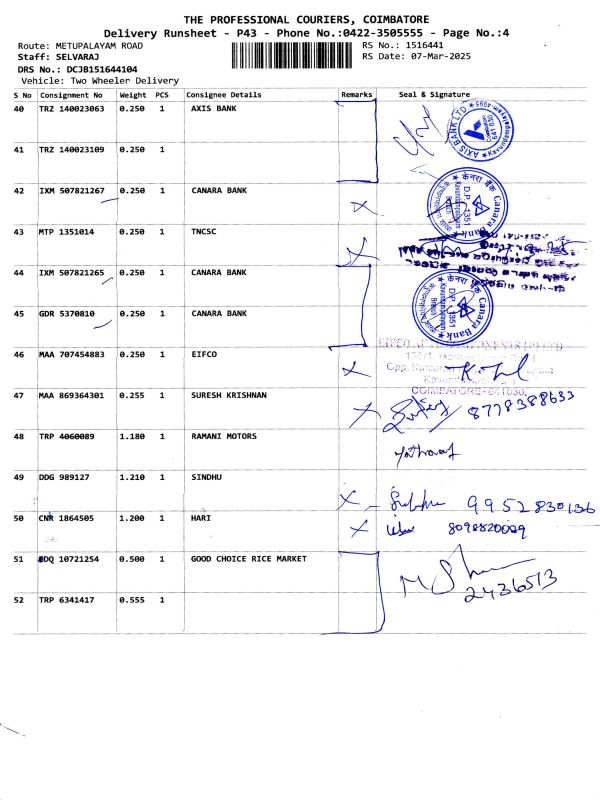 THE PROFESSIONAL COURIERS, COIMBATORE
Delivery Runsheet - P43 - Phone No.:0422-3505555 - Page No.:4
Route: METUPALAYAM ROAD RS No.: 1516441
Staff: SELVARAJ RS Date: 07-Mar-2025
DRS No.: DCJB151644104
Vehicle: Two Wheeler Delivery
S No Consignment No Weight PCS Consignee Details Remarks Seal & Signature
40 TRZ 140023063 0.250 1 AXIS BANK
AXIS BANK LTD
41 TRZ 140023109 0.250 1
42 IXM 507821267 0.250 1 CANARA BANK
केनरा बैंक Canara Bank
D.P. 1351
43 MTP 1351014 0.250 1 TNCSC
44 IXM 507821265 0.250 1 CANARA BANK
केनरा बैंक Canara Bank
D.P. 1351
45 GDR 5370810 0.250 1 CANARA BANK
46 MAA 707454883 0.250 1 EIFCO
COIMBATORE - 641030.
47 MAA 869364301 0.255 1 SURESH KRISHNAN
8778388633
48 TRP 4060089 1.180 1 RAMANI MOTORS
49 DDG 989127 1.210 1 SINDHU
9952830136
50 CNR 1864505 1.200 1 HARI
8098820029
51 DDQ 10721254 0.500 1 GOOD CHOICE RICE MARKET
2436513
52 TRP 6341417 0.555 1